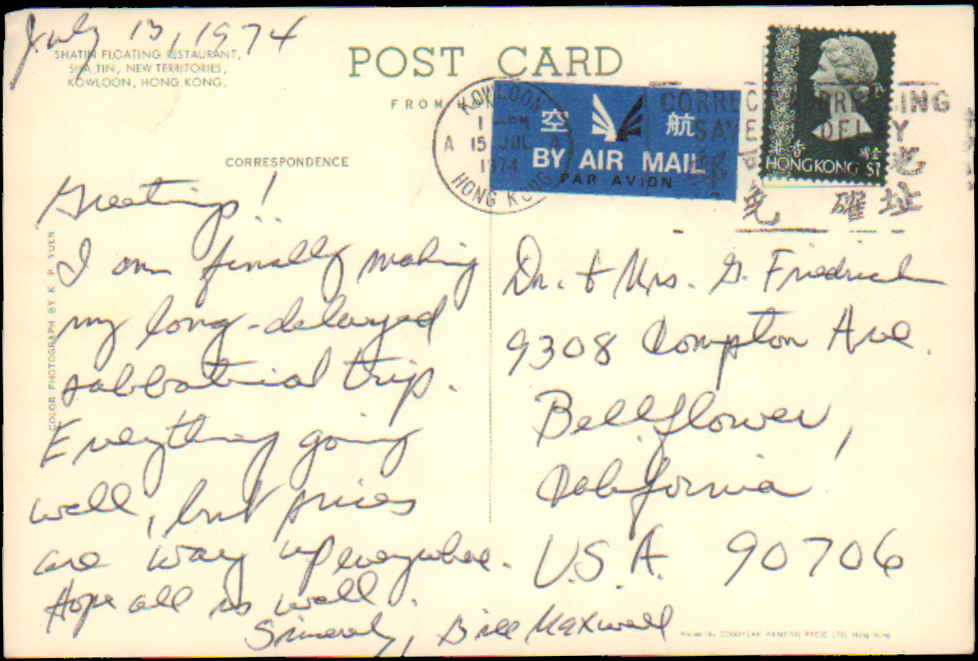 July 13, 1974
SHATIN FLOATING RESTAURANT,
SHATIN, NEW TERRITORIES,
KOWLOON, HONG KONG.
POST CARD
FROM HON
CORRESPONDENCE
KOWLOON
1 - PM
A 15 JUL A
1974
HONG KONG
空 航
BY AIR MAIL
PAR AVION
CORRECT ADDRESSING
SAVES DELAY
免 確 址
香港
HONG KONG $1
COLOR PHOTOGRAPH BY K. P. YUEN
Greetings!!
I am finally making
my long-delayed
sabbatrial trip.
Everything going
well, but prices
are way up everywhere.
Hope all is well.
Sincerely, Bill Maxwell
Dr. & Mrs. G. Friedrich
9308 Compton Ave.
Bellflower,
California
U.S.A. 90706
PRINTING PRESS LTD. HONG KONG